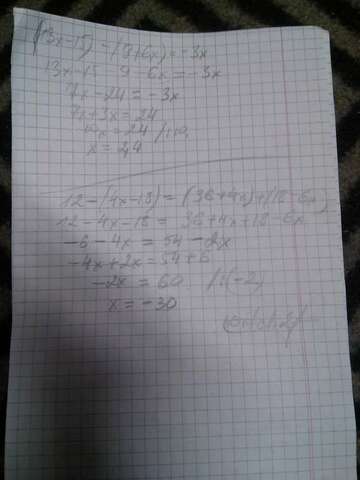 (13x-15) - (9+6x) = -3x
13x-15 9-6x = -3x
7x-24 = -3x
7x+3x = 24
10x = 24 /:10
x = 2,4
12-(4x-18) = (36+4x)+(18-6x)
12-4x-18 = 36+4x+18-6x
-6-4x = 54-2x
-4x+2x = 54+6
-2x = 60 /:(-2)
x = -30